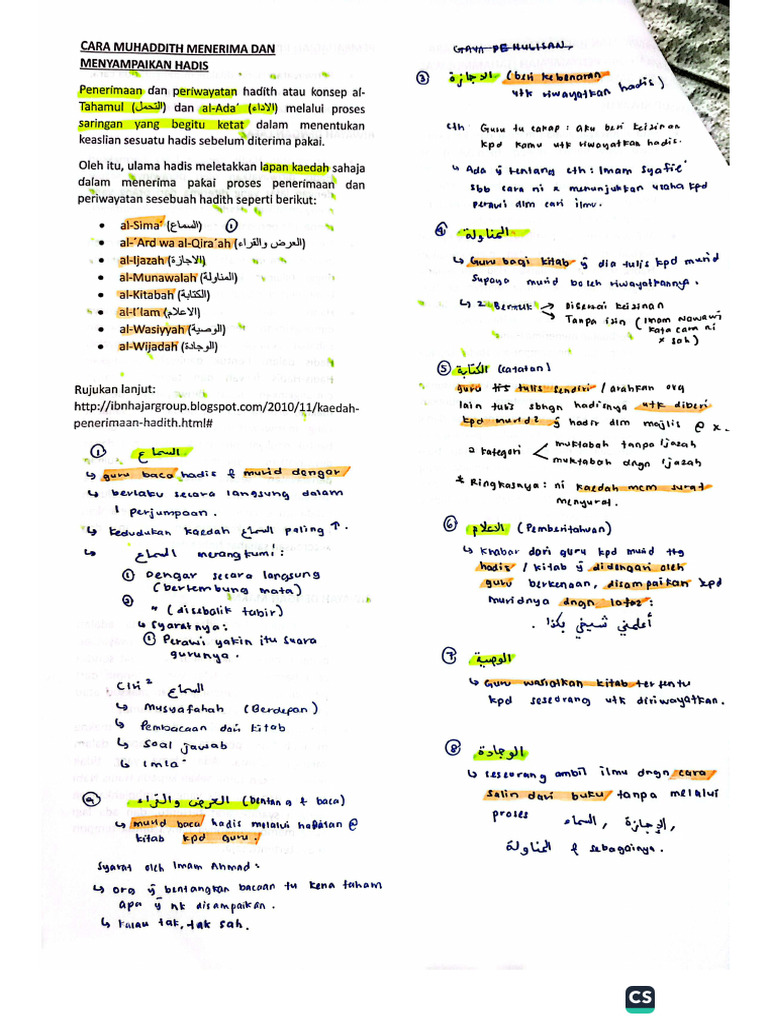 CARA MUHADDITH MENERIMA DAN
MENYAMPAIKAN HADIS
Penerimaan dan periwayatan hadith atau konsep al-
Tahamul (التحمل) dan al-Ada' (الاداء) melalui proses
saringan yang begitu ketat dalam menentukan
keaslian sesuatu hadis sebelum diterima pakai.
Oleh itu, ulama hadis meletakkan lapan kaedah sahaja
dalam menerima pakai proses penerimaan dan
periwayatan sesebuah hadith seperti berikut:
• al-Sima' (السماع) ①
• al-'Ard wa al-Qira'ah (العرض والقراء)
• al-Ijazah (الاجازة)
• al-Munawalah (المناولة)
• al-Kitabah (الكتابة)
• al-I'lam (الاعلام)
• al-Wasiyyah (الوصية)
• al-Wijadah (الوجادة)
Rujukan lanjut:
http://ibnhajargroup.blogspot.com/2010/11/kaedah-
penerimaan-hadith.html#
① السماع
↳ guru baca hadis & murid dengar
↳ berlaku secara langsung dalam
1 perjumpaan.
↳ Kedudukan kaedah السماع paling ↑.
↳ السماع merangkumi:
① Dengar secara langsung
(bertembung mata)
② " (disebalik tabir)
↳ syaratnya:
① Perawi yakin itu suara
gurunya.
Ciri² السماع
↳ Musyafahah (Berdepan)
↳ Pembacaan dari kitab
↳ Soal jawab
↳ Imla'
② العرض والقراء (bentang & baca)
↳ murid baca hadis melalui hafazan @
kitab kpd guru.
Syarat oleh Imam Ahmad:
↳ org ÿ bentangkan bacaan tu kena faham
apa ÿ nk disampaikan.
↳ Kalau tak, tak sah.
GAYA PENULISAN
③ الاجازة (beri kebenaran
utk riwayatkan hadis)
cth Guru tu cakap: aku beri keizinan
kpd kamu utk riwayatkan hadis.
↳ Ada ÿ tentang cth: Imam Syafie'
sbb cara ni x menunjukkan usaha kpd
perawi dlm cari ilmu.
④ المناولة
↳ Guru bagi kitab ÿ dia tulis kpd murid
supaya murid boleh riwayatkannya.
↳ 2 Bentuk → Disertai keizinan
→ Tanpa izin (Imam Nawawi
kata cara ni
x soh)
⑤ الكتابة (catatan)
guru tulis sendiri / arahkan org
lain tulis sbhgn hadisnya utk diberi
kpd murid² ÿ hadir dlm majlis @ x.
2 kategori < muktabah tanpa ijazah
muktabah dngn ijazah
* Ringkasnya: ni kaedah mcm surat
menyurat.
⑥ الاعلام (Pemberitahuan)
↳ Khabar dari guru kpd murid ttg
hadis / kitab ÿ didengari oleh
guru berkenaan, disampaikan kpd
muridnya dngn lafaz:
أعلمني شيخي بكذا.
⑦ الوصية
↳ Guru wasiatkan kitab tertentu
kpd seseorang utk diriwayatkan.
⑧ الوجادة
↳ seseorang ambil ilmu dngn cara
salin dari buku tanpa melalui
proses السماع, الإجازة,
المناولة & sebagainya.
CS